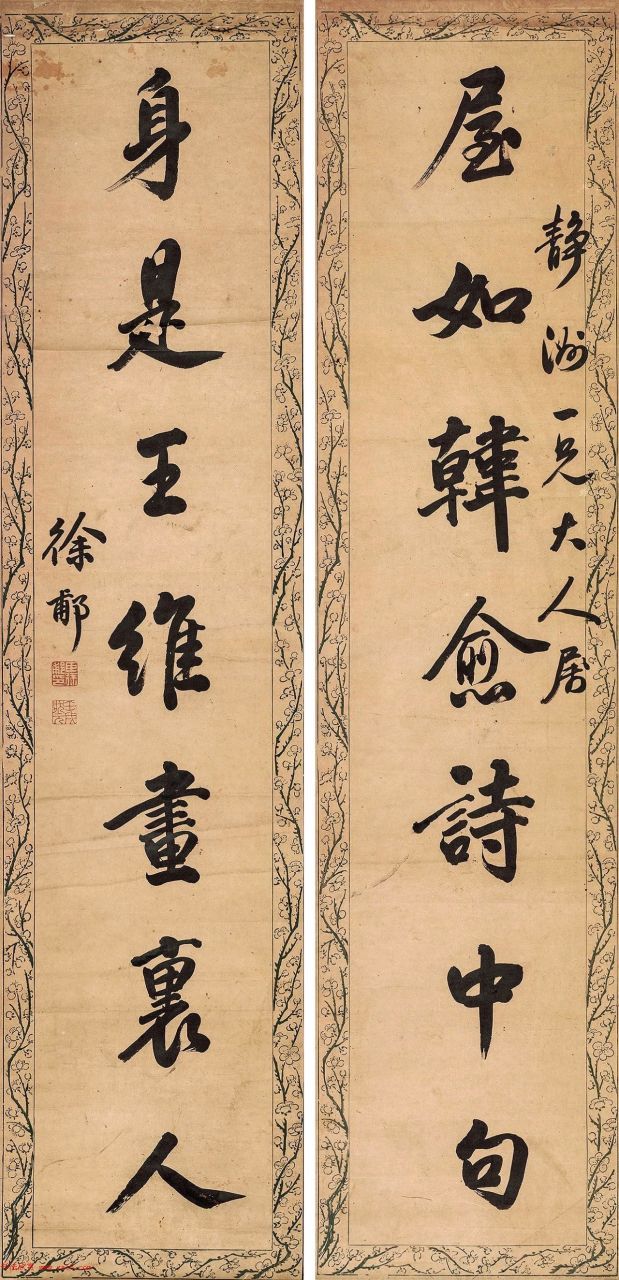 屋如韓愈詩中句
静洲一兄大人居
身是王維畫裏人
徐郙